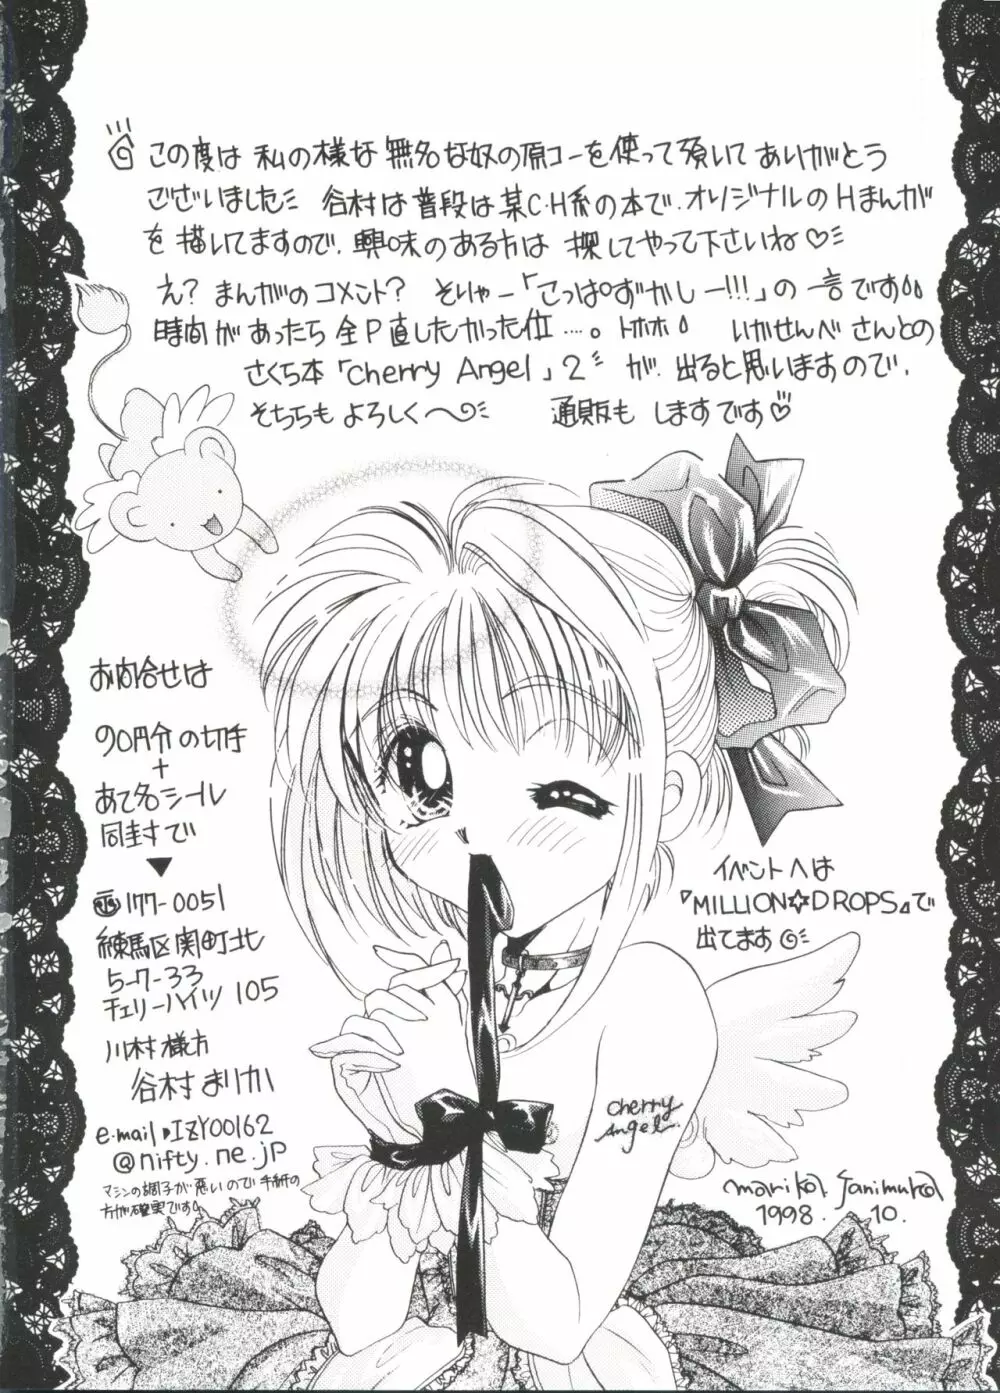 この度は私の様な無名な奴の原コーを使って頂いてありがとう
ございました 谷村は普段は某C・H系の本で、オリジナルのHまんが
を描いてますので、興味のある方は探してやって下さいね♡
え？まんがのコメント？そりゃー「こっぱずかしー!!!」の一言です
時間があったら全P直したかった位……。トホホ いかせんべさんとの
さくら本「Cherry Angel」2が、出ると思いますので、
そちらもよろしく〜 通販もしますです♡
お問合せは
90円分の切手
+
あて名シール
同封で
▼
〒177-0051
練馬区関町北
5-7-33
チェリーハイツ105
川村様方
谷村まりか
e-mail▶IZY00162
@nifty.ne.jp
マシンの調子が悪いので手紙の
方が確実です。
イベントへは
『MILLION☆DROPS』で
出てます
Cherry
Angel.
Marika Tanimura
1998. 10.